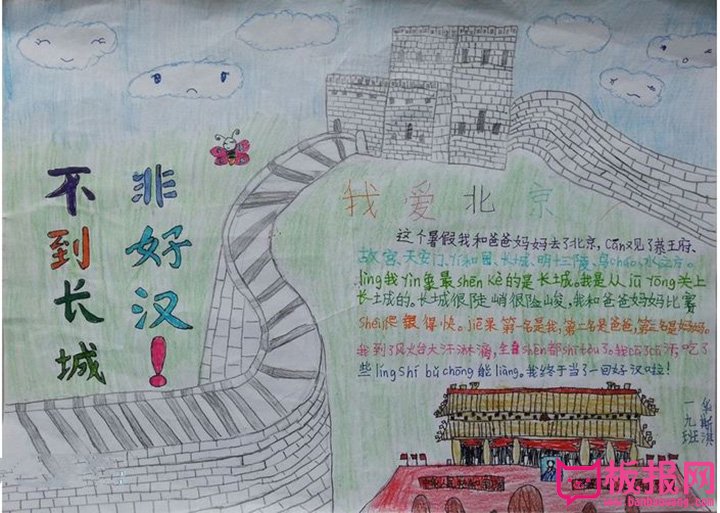 不到长城
非好汉!
我爱北京
这个暑假我和爸爸妈妈去了北京,Cān观了恭王府、
故宫、天安门、Yí和园、长城、明十三陵、鸟cháo、水立方。
lìng我yìn象最shēn kè的是长城。我是从jū yōng关上
长城的。长城很陡峭很险峻,我和爸爸妈妈比赛
sheí爬得快。jié果第一名是我,第二名是爸爸,第三名是妈妈。
我到了风火台大汗淋漓,全shēn都shī tòu了。我cā了cā汗,吃了
些líng shí bǔ chōng能liàng。我终于当了一回好汉啦!
一九班
板报网